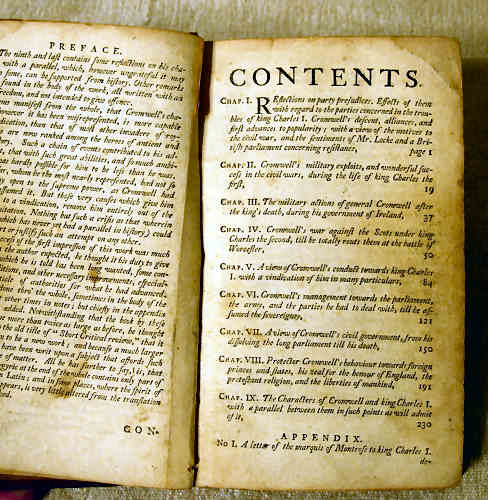 PREFACE.
The ninth and last contains some reflections on his cha-
with a parallel, which, however ungrateful it may
to some, can be supported from history. Other remarks
found in the body of the work, all written with an
freedom, and not intended to give offence.
manifest from the whole, that Cromwell's cha-
however it has been misrepresented, is as capable
tion, than that of most other invaders of a go-
are now ranked among the heroes of antient and
Such a chain of events contributed to his ad-
and with such great abilities, and so much
was hardly possible for him to be less than he was
whom he the most warmly represented, had not so
open to the supreme power, as Cromwell had
But these very causes which give him
to a vindication, remove him entirely out of the
Nothing but such a crisis as that wherein
which no longer in had a parallel in history,) could
or justify such an attempt on any other.
success of the first impression of this work was much
author expected, he thought proper to give
which he is told has been wanted, some con-
ditions, and other improvements, especial-
article of authorities for what he had advanced
the whole, sometimes in the body of the
other times in notes; but chiefly in the appendix
ded. Notwithstanding that the book by these
more than twice as large as before, he thought
the old title of a "Short Critical review," that it
to be a new work; and because a much larger
have been writ upon a subject that affords such
of matter. All he has farther to say, is, that
gyric at the end of the work contains only part of
Latin; and in some places, where the spirit of
appears, is very little altered from the translation
CON-
CONTENTS.
CHAP. I. REflections on party prejudices. Effects of them
with regard to the parties concerned in the trou-
bles of king Charles I. Cromwell's descent, alliances, and
first advances to popularity; with a view of the motives to
the civil war, and the sentiments of Mr. Locke and a Bri-
tish parliament concerning resistance, page 1
CHAP. II. Cromwell's military exploits, and wonderful suc-
cess in the civil wars, during the life of king Charles the
first, 19
CHAP. III. The military actions of general Cromwell after
the king's death, during his government of Ireland, 37
CHAP. IV. Cromwell's war against the Scots under king
Charles the second, till he totally routs them at the battle of
Worcester, 50
CHAP. V. A view of Cromwell's conduct towards king Charles
I. with a vindication of him in many particulars, 84
CHAP. VI. Cromwell's management towards the parliament,
the army, and the parties he had to deal with, till he as-
sumed the sovereignty, 121
CHAP. VII. A view of Cromwell's civil government, from his
dissolving the long parliament till his death, 150
CHAP. VIII. Protector Cromwell's behaviour towards foreign
princes and states, his zeal for the honour of England, the
protestant religion, and the liberties of mankind, 191
CHAP. IX. The Characters of Cromwell and king Charles I.
with a parallel between them in such points as will admit
of it, 230
APPENDIX.
No I. A letter of the marquis of Montrose to king Charles I.
de-